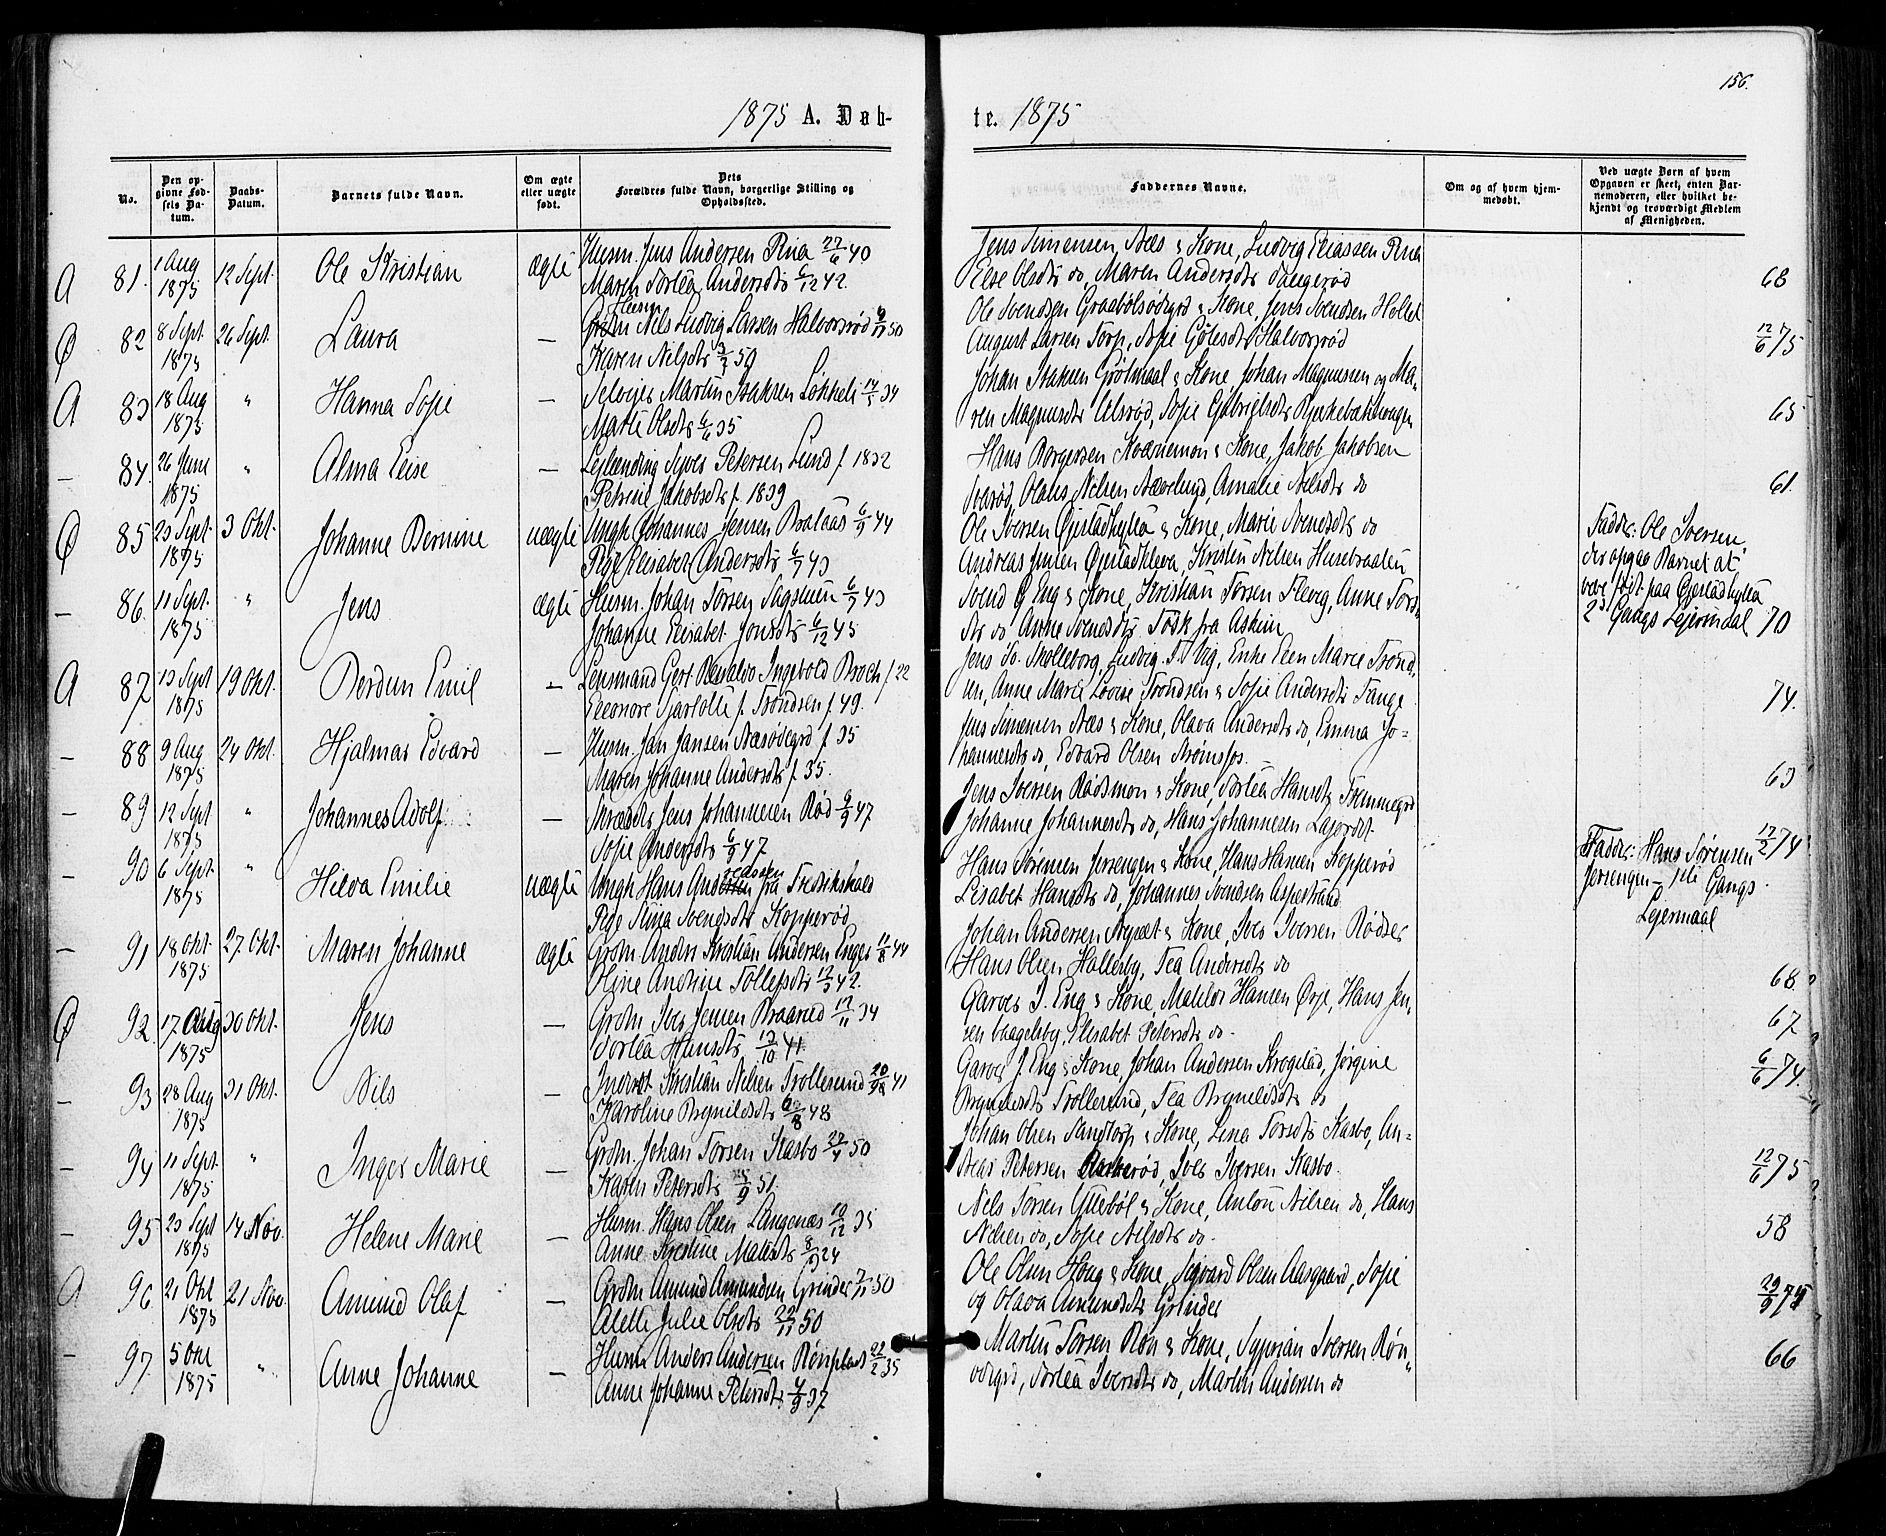 156.
1875 A. Døb-
te. 1875
No.
Den opgivne Fødsels Datum.
Daabs-Datum.
Barnets fulde Navn.
Om ægte eller uægte født.
Dets Forældres fulde Navn, borgerlige Stilling og Opholdssted.
Faddernes Navne.
Om og af hvem hjemmedøbt.
Ved uægte Børn af hvem Opgaven er skeet, enten Barnemoderen, eller hvilket bekjendt og troværdigt Medlem af Menigheden.
81. 1 Aug 1875 12 Sept. Ole Kristian ægte Husm. Jens Andersen Rua 27/6 40
Maren Torlea Andersdtr 6/12 42.
Jens Simensen Næs & Kone, Ludvig Eliassen Rua
Else Olsdtr do, Maren Andersdtr Tangerød
68
82 8 Sept. 1875 26 Sept. Laura — Grdm Nils Ludvig Larsen Halvorsrød 50
Karen Nilsdtr 50
Ole Svendsen & Kone, Jens Svendsen
August Larsen Torp, Sofie Halvorsrød
12/6 75
83 18 Aug 1875 " Hanna Sofie — Selveier Martin Isaksen Løkkeli 14/5 34
Marte Olsdtr 6/6 35
Johan Isaksen & Kone, Johan Magnussen og Ma-
ren Magnusdtr Ulsrød, Sofie Gabrielsdtr
65
84. 26 Juni 1875 " Alma Elise — Leilending Syver Petersen Lund f. 1832
Petrine Jakobsdtr f. 1839
Hans Borgersen & Kone, Jakob Jakobsen
Olaus Nilsen, Amalie Nilsdtr do
61.
85 23 Sept. 1875 3 Okt. Johanne Bernine uægte Ungk Johannes Jensen Brataas 6/9 44
Pige Elisabet Andersdtr 6/7 43
Ole Iversen & Kone, Marie Svendsdtr do
Andreas Jensen, Kristen Nilsen Husebraaten
Fadder: Ole Iversen,
der opgav Barnet at
være født paa
2d Gangs Leiermaal
86. 11 Sept. 1875 " Jens ægte Husm. Johan Torsen Sagstuen 6/7 43
Johanne Elisabet Jonsdtr 6/12 45
Svend G Eng & Kone, Kristian Torsen, Anne Tors-
dtr do Anne Svendsdtr fra Askim
70
87 13 Sept 1875 19 Okt. Berdun Emil — Lensmand Gert Ingebold Broch f. 22
Eleonore Sjarlotte f. Trondsen f. 49.
Jens So. Skolleborg, Ludvig, Enke Elen Marie Trond-
sen, Anne Marie Lovise Trondsen & Sofie Andersdtr Tange
74.
88 9 Aug 1875 24 Okt. Hjalmar Edvard — Husm. Jan Jansen Næsødegrd f. 35
Maren Johanne Andersdtr f. 35.
Jens Simensen Næs & Kone, Olava Andersdtr do, Emma Jo-
hannesdtr do, Edvard Olsen Strømsfos.
63
89 12 Sept 1875 " Johannes Adolf — Skrædder Jens Johannesen Rød 47
Sofie Andersdtr 6/9 47
Jens Iversen Rødsmon & Kone, Torlea Hansdtr
Johanne Johannesdtr do, Hans Johannesen
12/2 74
90 6 Sept. 1875 " Hilda Emilie uægte Ungk Hans Andreassen fra Fredrikshald
Pige Stina Svendsdtr Kopperød
Hans Sørensen Jerrengen & Kone, Hans Hansen Kopperød
Lisabet Hansdtr do, Johannes Svendsen Aspestrand
Fadder: Hans Sørensen
Jerrengen – 1ste Gangs
Leiermaal
91 18 Okt 1875 27. Okt. Maren Johanne ægte Grdm. Anders Kristian Andersen Enger 44
Oline Andrine Tollefsdtr 42.
Johan Andersen & Kone, Iver Iversen Rødser
Hans Olsen Hallerby, Tea Andersdtr do
68
92. 17 Aug 1875 30 Okt. Jens — Grdm Iver Jensen Braarud 34
Torlea Hansdtr 13/10 41
Garver J. Eng & Kone, Matilde Hansen Ørje, Hans Jen-
sen, Elisabet Petersdtr do.
67
93 28 Aug 1875 31 Okt. Nils — Indrst Kristian Nilsen Trollerud 41
Karoline Brynildsdtr 48
Garver J Eng & Kone, Johan Andersen Krogstad, Jørgine
Brynildsdtr Trollerud, Tea Brynildsdtr do
6/6 74.
94 11 Sept. 1875 " Inger Marie — Grdm. Johan Torsen Kasbo 50
Karen Petersdtr 5/9 51
Johan Olsen Sandtorp & Kone, Lina Torsdtr Kasbo, An-
dreas Petersen, Iver Iversen Kasbo.
12/6 75
95 23 Sept 1875 14 Nov. Helene Marie — Husm. Hans Olsen Langenæs 10/12 35
Anne Kristine 34
Nils Torsen Ottebøl & Kone, Anton Nilsen do, Hans
Nilsen do, Sofie Nilsdtr do.
58
96 21 Okt 1875 21 Nov. Amund Olaf — Grdm Amund Amundsen Grinder 50
Alette Julie Olsdtr 50
Ole Olsen Houg & Kone, Sigvard Olsen Aasgaard, Sofie
og Olava Amundsdtr Grinder
97. 5 Okt 1875 " Anne Johanne — Husm Anders Andersen 22/2 35
Anne Johanne Petersdtr 37
Martin Torsen Røn & Kone, Syprian Iversen Røn-
ødegrd, Torlea Iversdtr do, Martin Andersen do
66